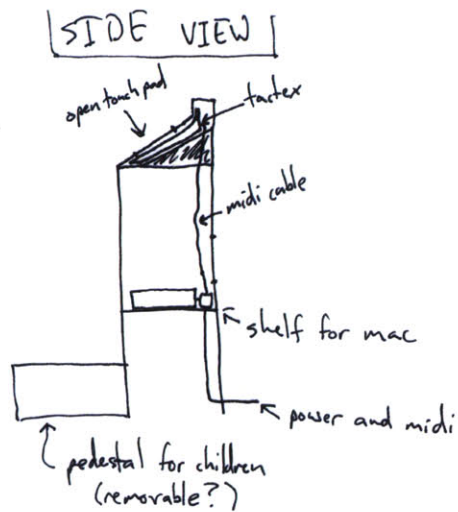 SIDE VIEW
open touch pad
tactex
midi cable
shelf for mac
power and midi
pedestal for children
(removable?)